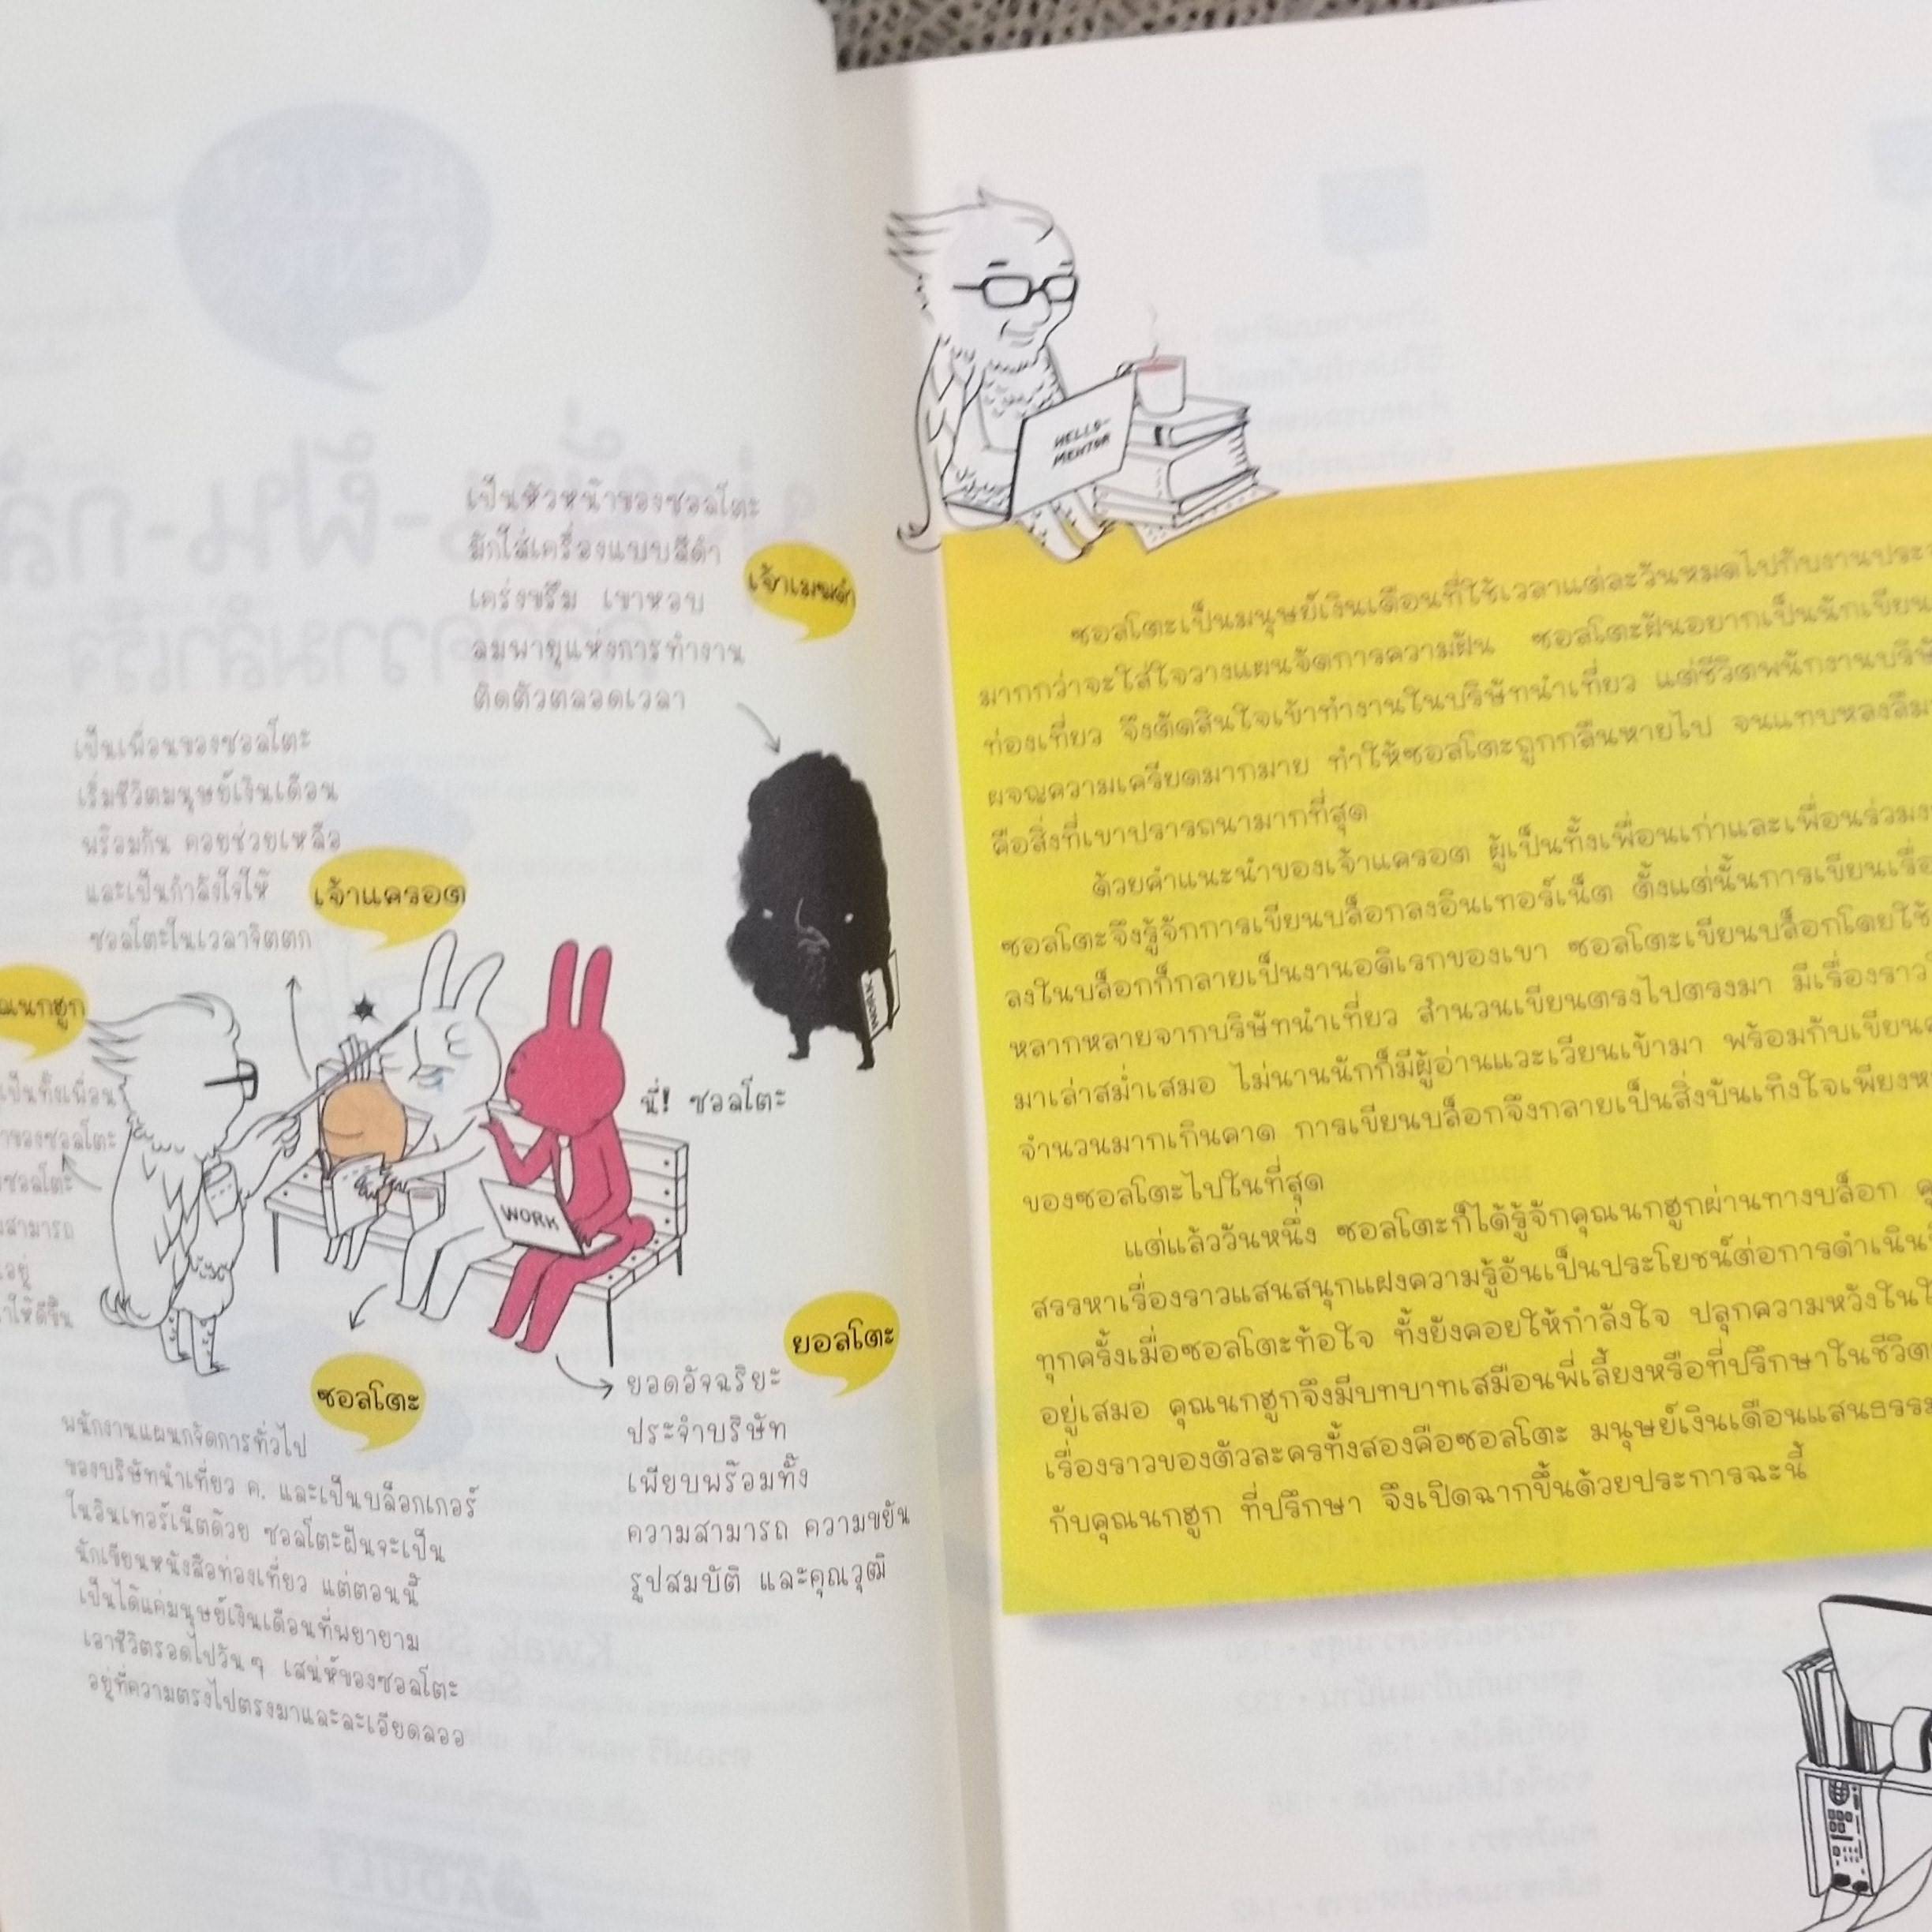 เป็นหัวหน้าของซอลโตะ
มักใส่เครื่องแบบสีดำ
เคร่งขรึม เขาหอบ
ลมพายุแห่งการทำงาน
ติดตัวตลอดเวลา
เจ้าเมฆดำ
เป็นเพื่อนของซอลโตะ
เริ่มชีวิตมนุษย์เงินเดือน
พร้อมกัน คอยช่วยเหลือ
และเป็นกำลังใจให้
ซอลโตะในเวลาจิตตก
เจ้าแครอต
ณนกฮูก
เป็นทั้งเพื่อน
ของซอลโตะ
ซอลโตะ
สามารถ
อยู่
ให้ดีขึ้น
WORK
นี่! ซอลโตะ
WORK
ซอลโตะ
พนักงานแผนกจัดการทั่วไป
ของบริษัทนำเที่ยว ค. และเป็นบล็อกเกอร์
ในอินเทอร์เน็ตด้วย ซอลโตะฝันจะเป็น
นักเขียนหนังสือท่องเที่ยว แต่ตอนนี้
เป็นได้แค่มนุษย์เงินเดือนที่พยายาม
เอาชีวิตรอดไปวันๆ เสน่ห์ของซอลโตะ
อยู่ที่ความตรงไปตรงมาและละเอียดลออ
ยอลโตะ
ยอดอัจฉริยะ
ประจำบริษัท
เพียบพร้อมทั้ง
ความสามารถ ความขยัน
รูปสมบัติ และคุณวุฒิ
HELLO-
MENTOR
ซอลโตะเป็นมนุษย์เงินเดือนที่ใช้เวลาแต่ละวันหมดไปกับงานประจ
มากกว่าจะใส่ใจวางแผนจัดการความฝัน ซอลโตะฝันอยากเป็นนักเขียน
ท่องเที่ยว จึงตัดสินใจเข้าทำงานในบริษัทนำเที่ยว แต่ชีวิตพนักงานบริษั
ผจญความเครียดมากมาย ทำให้ซอลโตะถูกกลืนหายไป จนแทบหลงลืม
คือสิ่งที่เขาปรารถนามากที่สุด
ด้วยคำแนะนำของเจ้าแครอต ผู้เป็นทั้งเพื่อนเก่าและเพื่อนร่วมง
ซอลโตะจึงรู้จักการเขียนบล็อกลงอินเทอร์เน็ต ตั้งแต่นั้นการเขียนเรื่อ
ลงในบล็อกก็กลายเป็นงานอดิเรกของเขา ซอลโตะเขียนบล็อกโดยใช้
หลากหลายจากบริษัทนำเที่ยว สำนวนเขียนตรงไปตรงมา มีเรื่องราว
มาเล่าสม่ำเสมอ ไม่นานนักก็มีผู้อ่านแวะเวียนเข้ามา พร้อมกับเขียน
จำนวนมากเกินคาด การเขียนบล็อกจึงกลายเป็นสิ่งบันเทิงใจเพียงห
ของซอลโตะไปในที่สุด
แต่แล้ววันหนึ่ง ซอลโตะก็ได้รู้จักคุณนกฮูกผ่านทางบล็อก คุ
สรรหาเรื่องราวแสนสนุกแฝงความรู้อันเป็นประโยชน์ต่อการดำเนิน
ทุกครั้งเมื่อซอลโตะท้อใจ ทั้งยังคอยให้กำลังใจ ปลุกความหวังในใ
อยู่เสมอ คุณนกฮูกจึงมีบทบาทเสมือนพี่เลี้ยงหรือที่ปรึกษาในชีวิต
เรื่องราวของตัวละครทั้งสองคือซอลโตะ มนุษย์เงินเดือนแสนธรรม
กับคุณนกฮูก ที่ปรึกษา จึงเปิดฉากขึ้นด้วยประการฉะนี้